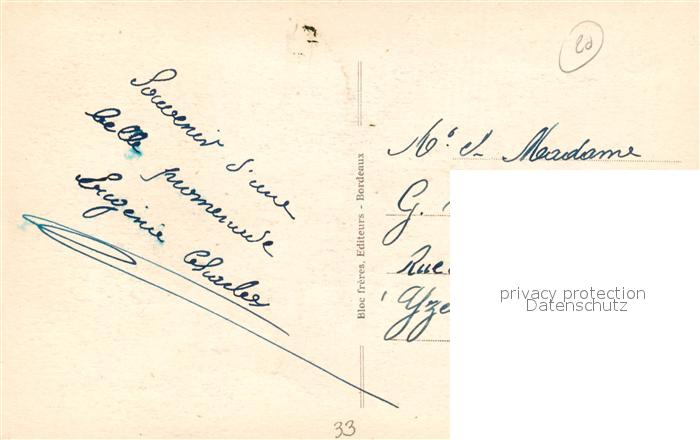 Souvenir d'une
belle promenade
Eugénie Charles
Bloc frères, Editeurs - Bordeaux
20
Mr. et Madame
G.
Rue
privacy protection
Datenschutz
33